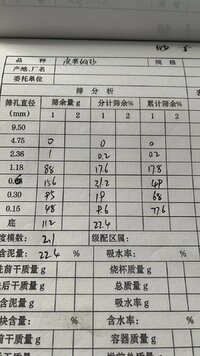 品 种
规 格
产地.厂名
委托单位
筛 分 析
筛孔直径 (mm) 筛余量 g 分计筛余% 累计筛余%
1 2 1 2 1 2
9.50
4.75 0 0 0
2.36 1 0.2 0.2
1.18 88 17.6 17.8
0.6 156 31.2 49
0.30 95 19 68
0.15 48 9.6 77.6
底 112 22.4
度模数: 2.1 级配区属:
含泥量 22.4 % 吸水率: %
洗前干质量 g 烧杯质量 g
后干质量 g 总质量 g
含泥量 g 吸水率 g
块含量: % 含水率: %
前干质量 g 容器质量 g